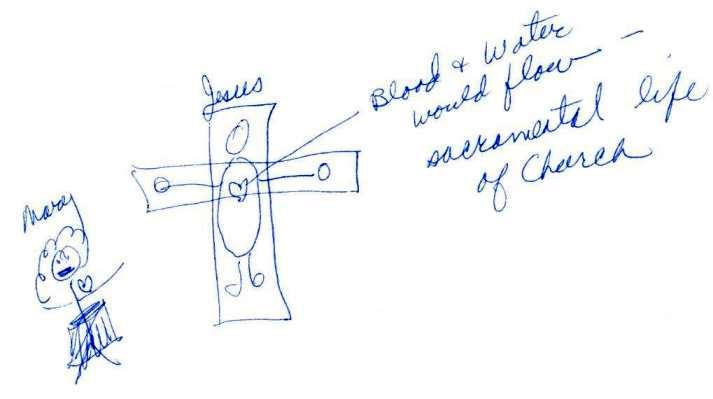 Jesus
Blood & Water
would flow –
sacramental life
of Church
Mary